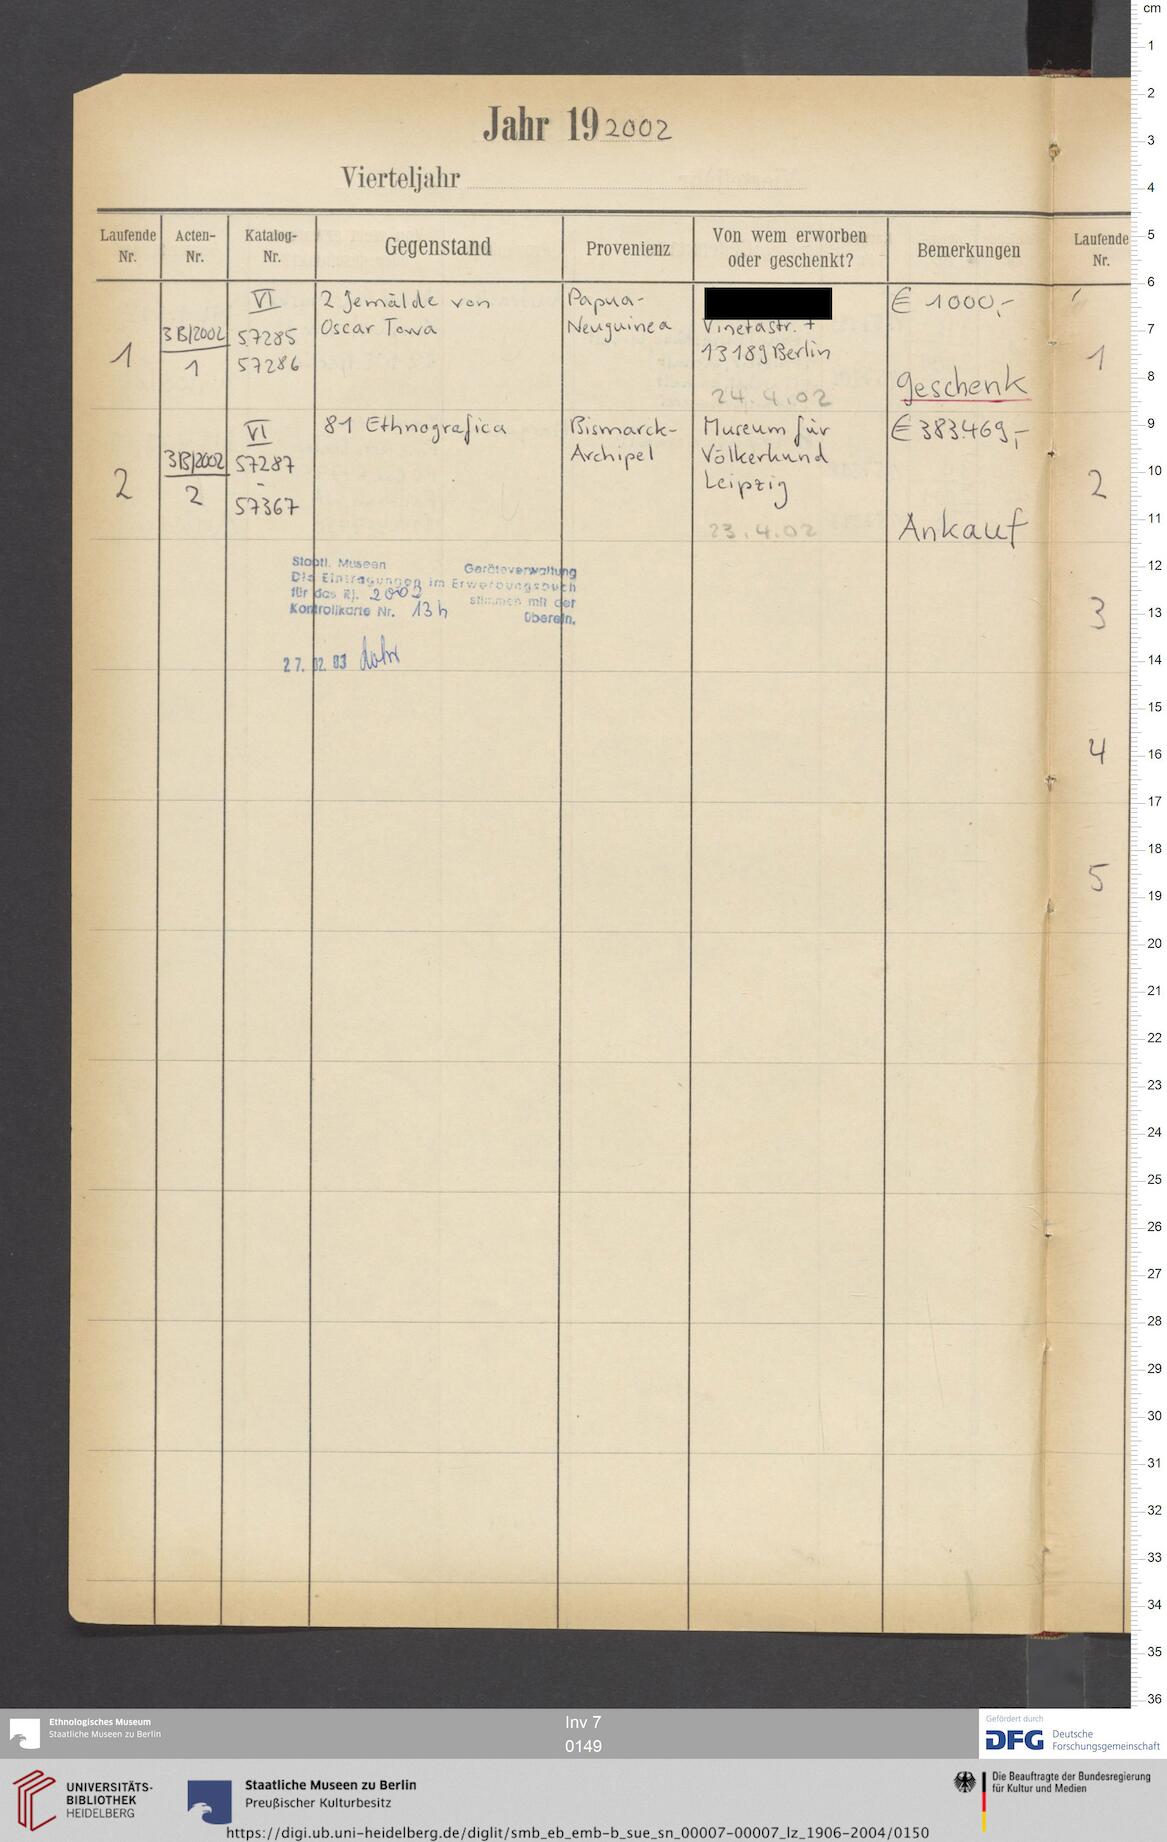 Jahr 19 2002
Vierteljahr
Laufende Nr.
Acten-Nr.
Katalog-Nr.
Gegenstand
Provenienz
Von wem erworben oder geschenkt?
Bemerkungen
Laufende Nr.
1
3B/2002
1
VI
57285
57286
2 Gemälde von
Oscar Towa
Papua-
Neuguinea
Vinetastr. 7
13189 Berlin
24.4.02
€ 1000,-
Geschenk
1
2
3B/2002
2
VI
57287
-
57367
81 Ethnografica
Bismarck-
Archipel
Museum für
Völkerkund
Leipzig
23.4.02
€ 383.469,-
Ankauf
2
Staatl. Museen Geräteverwaltung
Die Eintragungen im Erwerbungsbuch
für das Rj. 2002 stimmen mit der
Kontrollkarte Nr. 13h überein.
27. 02. 03
3
4
5
cm
1
2
3
4
5
6
7
8
9
10
11
12
13
14
15
16
17
18
19
20
21
22
23
24
25
26
27
28
29
30
31
32
33
34
35
36
Ethnologisches Museum
Staatliche Museen zu Berlin
Inv 7
0149
Gefördert durch
DFG Deutsche
Forschungsgemeinschaft
UNIVERSITÄTS-
BIBLIOTHEK
HEIDELBERG
Staatliche Museen zu Berlin
Preußischer Kulturbesitz
Die Beauftragte der Bundesregierung
für Kultur und Medien
https://digi.ub.uni-heidelberg.de/diglit/smb_eb_emb-b_sue_sn_00007-00007_lz_1906-2004/0150